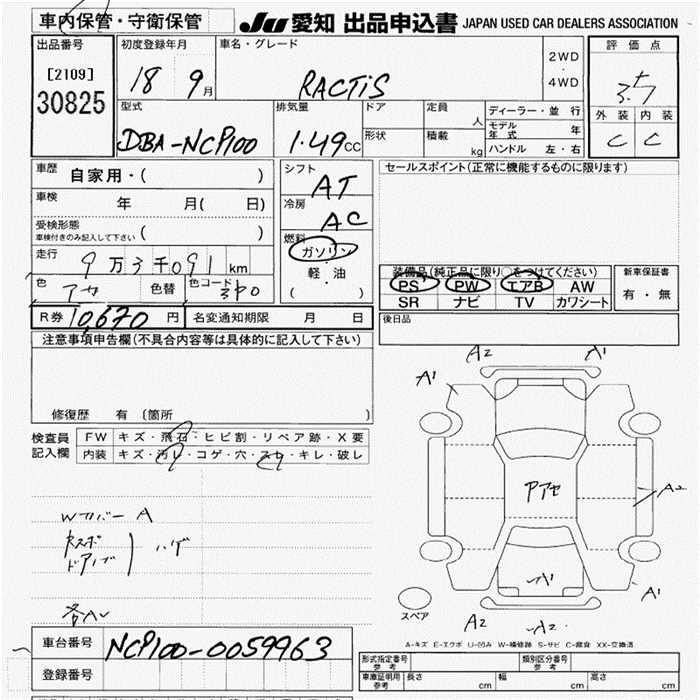 車内保管・守衛保管
JU 愛知 出品申込書 JAPAN USED CAR DEALERS ASSOCIATION
出品番号
[2109]
30825
初度登録年月
18 9月
車名・グレード
RACTiS
2WD
・
4WD
評価点
3.5
外装 内装
C C
型式
DBA-NCP100
排気量
1.49CC
ドア
形状
定員 人
積載 kg
ディーラー・並行
モデル年式 年
ハンドル 左・右
車歴 自家用・( )
車検 年 月( 日)
受検形態
車検付きのみ記入して下さい ( )
走行 9万3千091km
色 アカ 色替 色コード 3P0
シフト AT
冷房 AC
燃料
ガソリン
・
軽・油
( )
セールスポイント(正常に機能するものに限ります)
装備品(純正品に限り○をつけてください)
PS PW エアB AW
SR ナビ TV カワシート
新車保証書
有・無
R券 10,670円 名変通知期限 月 日
後日品
注意事項申告欄(不具合内容等は具体的に記入して下さい)
修復歴 有〔箇所 〕
検査員
記入欄
FW キズ・飛石・ヒビ割・リペア跡・X要
内装 キズ・汚レ・コゲ・穴・スレ・キレ・破レ
A2 A1
A1
Wカバー A
ドアノブ
ハゲ
A2
A1
A1
A2 A2
スペア
A-キズ E-エクボ U-凹み W-補修跡 S-サビ C-腐食 XX-交換済
車台番号 NCP100-0059963
登録番号
形式指定番号
参考
類別区分番号
参考
車庫証明用
参考
長さ cm 幅 cm 高さ cm